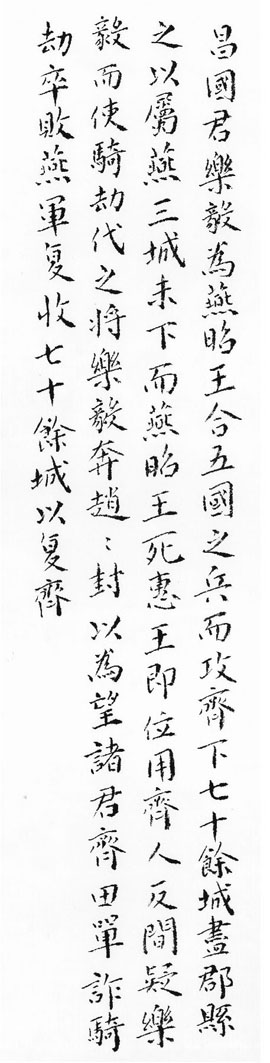 昌國君樂毅為燕昭王合五國之兵而攻齊下七十餘城盡郡縣
之以屬燕三城未下而燕昭王死惠王即位用齊人反間疑樂
毅而使騎劫代之将樂毅奔趙〻封以為望諸君齊田單詐騎
劫卒敗燕軍复收七十餘城以复齊